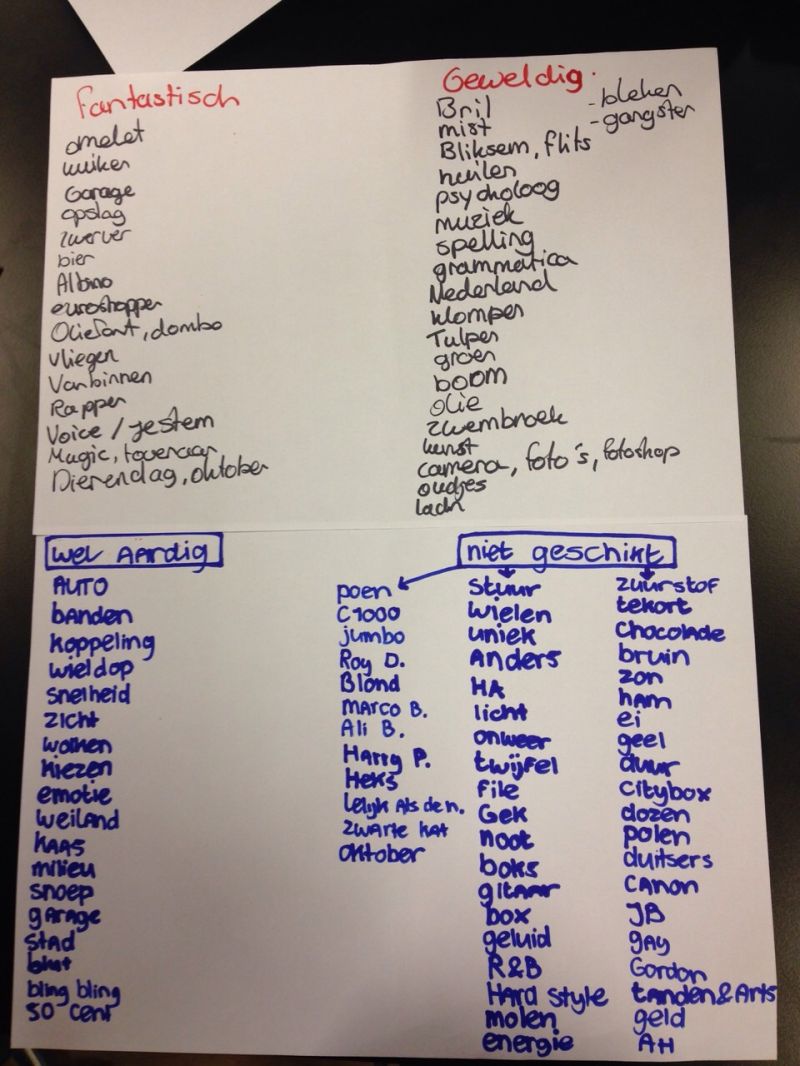 Fantastisch
omelet
kuiken
Garage
opslag
zwerver
bier
Albino
euroshopper
Oliefant, dombo
vliegen
Van binnen
Rapper
Voice / jestem
Magic, tovenaar
Dierendag, oktober
Geweldig.
Bril
mist
Bliksem, flits
huilen
psycholoog
muziek
spelling
grammatica
Nederland
klompen
Tulpen
groen
boom
olie
zwembroek
kunst
camera, foto's, fotoshop
oudjes
- bleken
- gangster
wel AARdig
AUTO
banden
koppeling
wieldop
snelheid
zicht
wolken
kiezen
emotie
weiland
KAAS
milieu
snoep
garage
stad
bling bling
50 cent
niet geschikt
poen
C1000
jumbo
Roy D.
Blond
MARCO B.
Ali B.
Harry P.
Heks
Lelijk Als de n.
Zwarte kat
Oktober
Stuur
Wielen
uniek
Anders
HA
licht
onweer
twijfel
File
Gek
noot
boks
gitaar
box
geluid
R&B
Hard style
molen
energie
zuurstof
tekort
Chocolade
bruin
zon
ham
ei
geel
duur
Citybox
dozen
polen
duitsers
CANON
JB
gay
Gordon
tanden & Arts
geld
AH